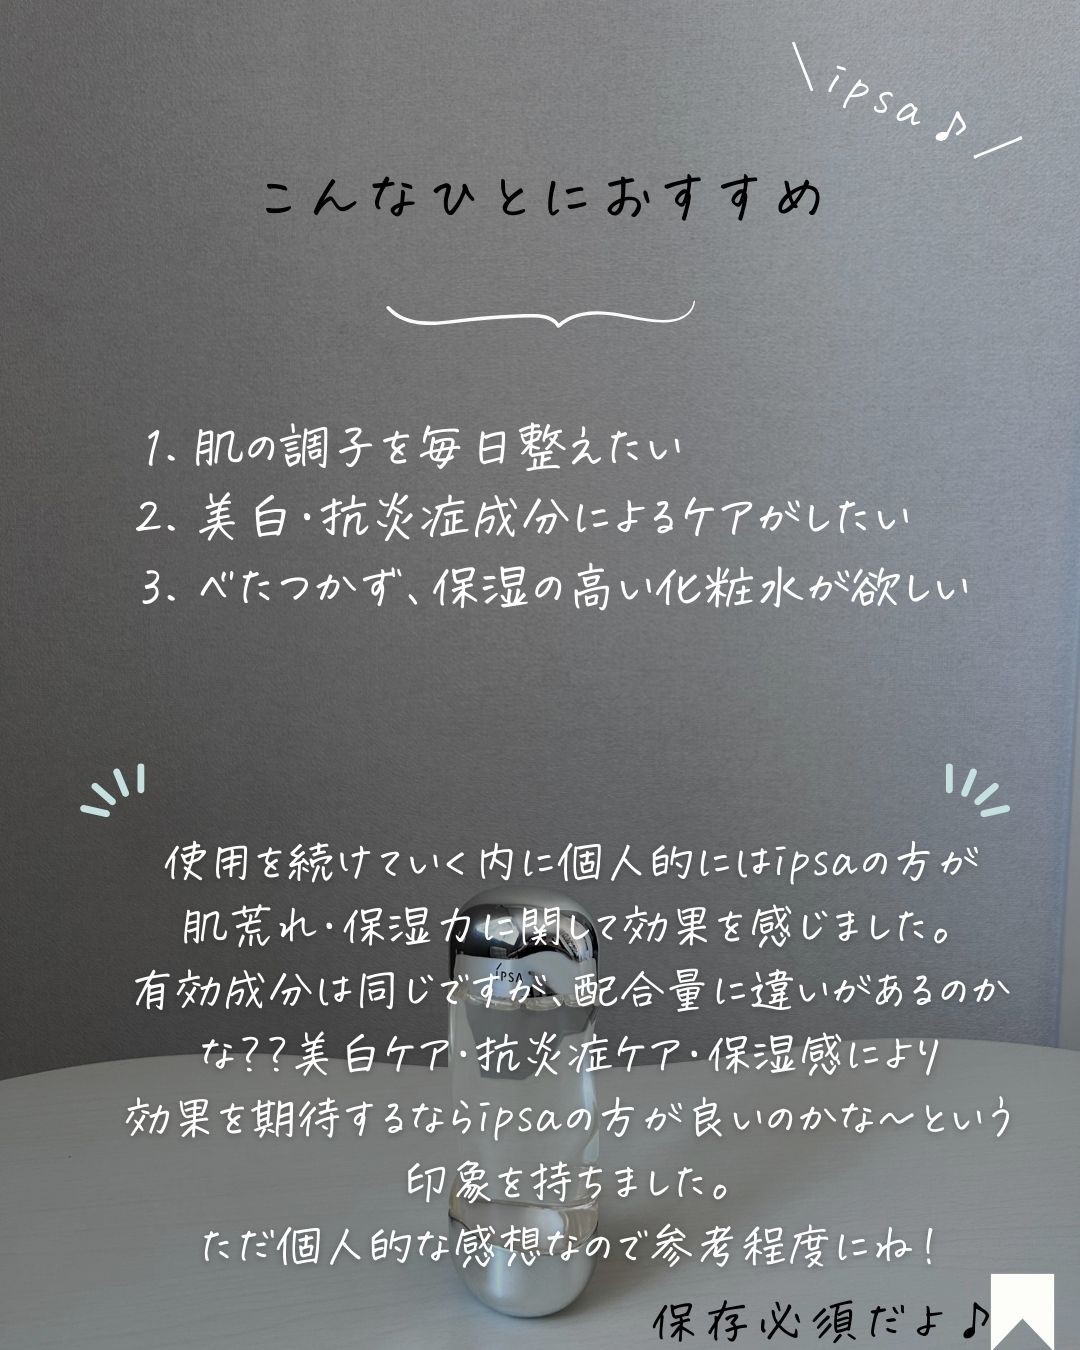 \ipsa♪/
こんなひとにおすすめ
1. 肌の調子を毎日整えたい
2. 美白・抗炎症成分によるケアがしたい
3. べたつかず、保湿の高い化粧水が欲しい
使用を続けていく内に個人的にはipsaの方が
肌荒れ・保湿力に関して効果を感じました。
有効成分は同じですが、配合量に違いがあるのか
な??美白ケア・抗炎症ケア・保湿感により
効果を期待するならipsaの方が良いのかな〜という
印象を持ちました。
ただ個人的な感想なので参考程度にね!
IPSA
保存必須だよ♪